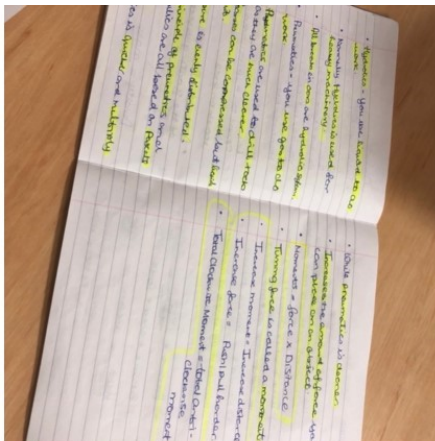 • Hydraulics = you use liquid to do
work.
• Normally hydraulics is used for
heavy machinery.
• All brakes in cars are hydraulic
• Pneumatics = you use gas to do
work
Pneumatics are used to drill
they are much cleaner
can be compressed but liquid
is evenly distributed
of pneumatics and
are all based on Pascal's
is quicker and multiply
• While pneumatics is cleaner
• Increases the amount of force you
can place on an object
• Moments = force x Distance
• Turning force is called a moment
• Increase moment = Increase distance
• Increase force = Push/pull harder
• Total Clockwise Moment = total anti-
clockwise
moment